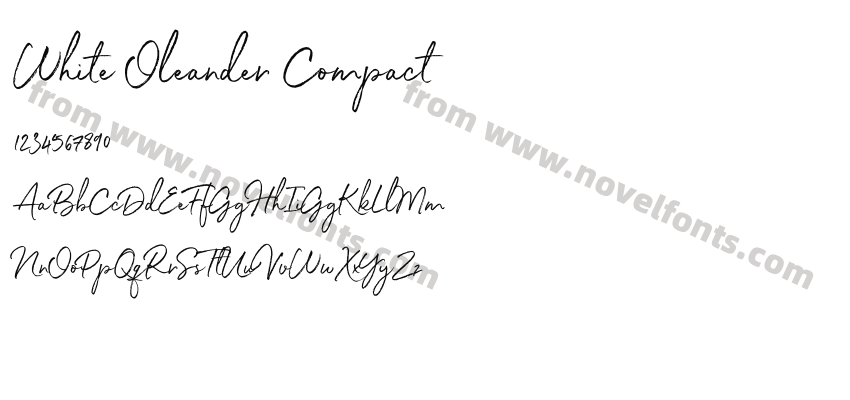 White Oleander Compact
1234567890
AaBbCcDdEeFfGgHhIiGgKkLlMm
NnOoPpQqRrSsTtUuVvWwXxYyZz
from www.novelfonts.com
from www.novelfonts.com